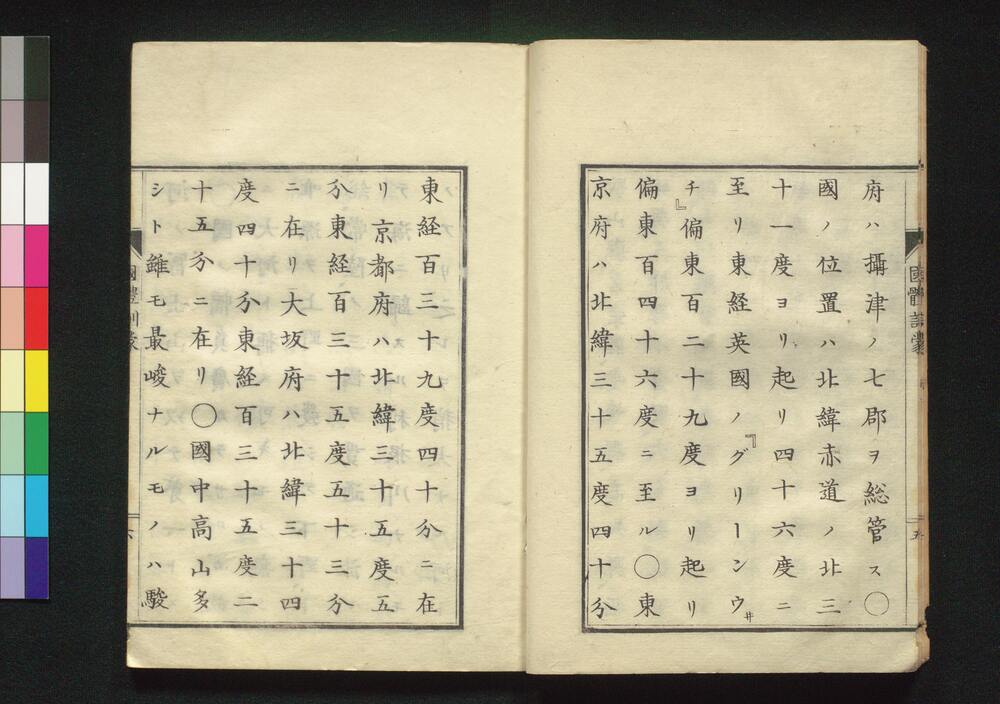 府ハ攝津ノ七郡ヲ総管ス〇
國ノ位置ハ北緯赤道ノ北三
十一度ヨリ起リ四十六度ニ
至リ東経英國ノ『グリーンウヰ
チ』偏東百二十九度ヨリ起リ
偏東百四十六度ニ至ル〇東
京府ハ北緯三十五度四十分
東経百三十九度四十分ニ在
リ京都府ハ北緯三十五度五
分東経百三十五度五十三分
ニ在リ大坂府ハ北緯三十四
度四十分東経百三十五度二
十五分ニ在リ〇國中高山多
シト雖モ最峻ナルモノハ駿